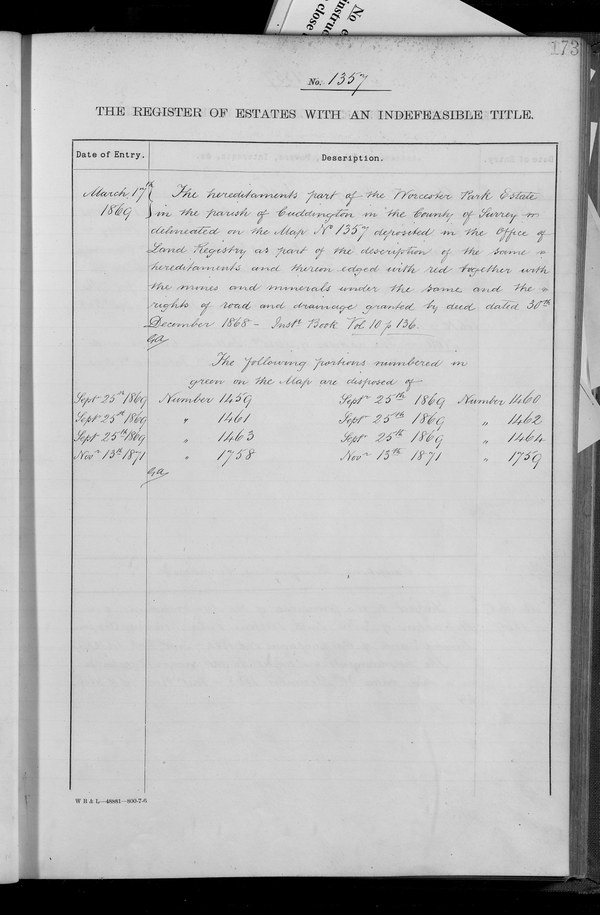 No
173
No. 1357
THE REGISTER OF ESTATES WITH AN INDEFEASIBLE TITLE.
Date of Entry. Description.
March 17th 1869 The hereditaments part of the Worcester Park Estate
in the parish of Cuddington in the County of Surrey
delineated on the Map No 1357 deposited in the Office of
Land Registry as part of the description of the same
hereditaments and thereon edged with red together with
the mines and minerals under the same and the
rights of road and drainage granted by deed dated 30th
December 1868 - Inst. Book Vol 10 p 136.
The following portions numbered in
green on the Map are disposed of
Sept 25th 1869 Number 1459 Sept 25th 1869 Number 1460
Sept 25th 1869 " 1461 Sept 25th 1869 " 1462
Sept 25th 1869 " 1463 Sept 25th 1869 " 1464
Novr 13th 1871 " 1758 Novr 13th 1871 " 1759
W B & L—48881—800-7-6